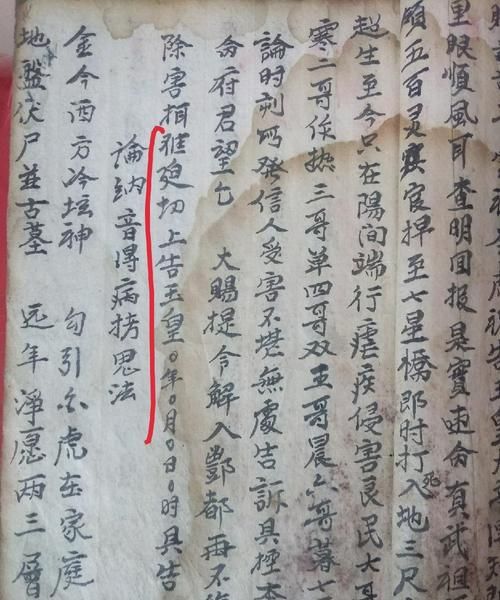 里眼順風耳查明回报是實速命真武祖
領五百灵官捍至七星橋即时打入死地三尺
起生至今只在陽间端行瘧疾侵害良民大哥
寒二哥作热三哥单四哥双五哥晨六哥暮七
論时刻所發信人受害不堪無處告訴具控本
命府君望乞 大賜提令解入酆都再不
除害 切上告玉皇〇年〇月〇日〇时具告
論納音得病捞鬼法
金今西方冷坛神 勾引白虎在家庭
地盤伏尸並古墓 远年淨愿两三層